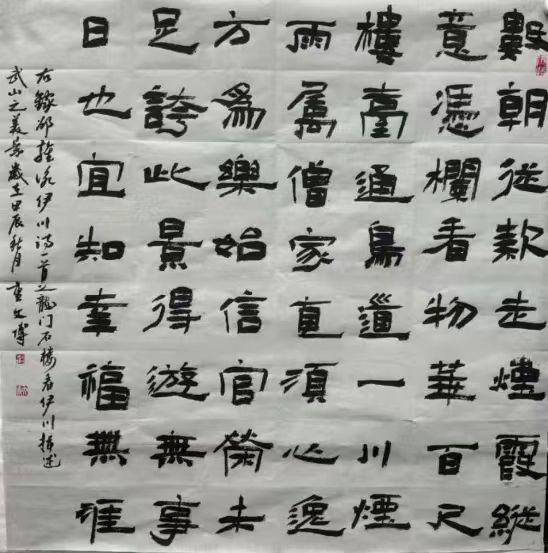 數朝從款走煙霞縱
意憑欄看物華百尺
樓臺通鳥道一川煙
雨属僧家直須心逸
方為樂始信官榮未
足誇此景得遊無事
日也宜知幸福無涯
右録邵雍伊川詩一首之龍门石楼看伊川描述
武山之美歲在甲辰秋月